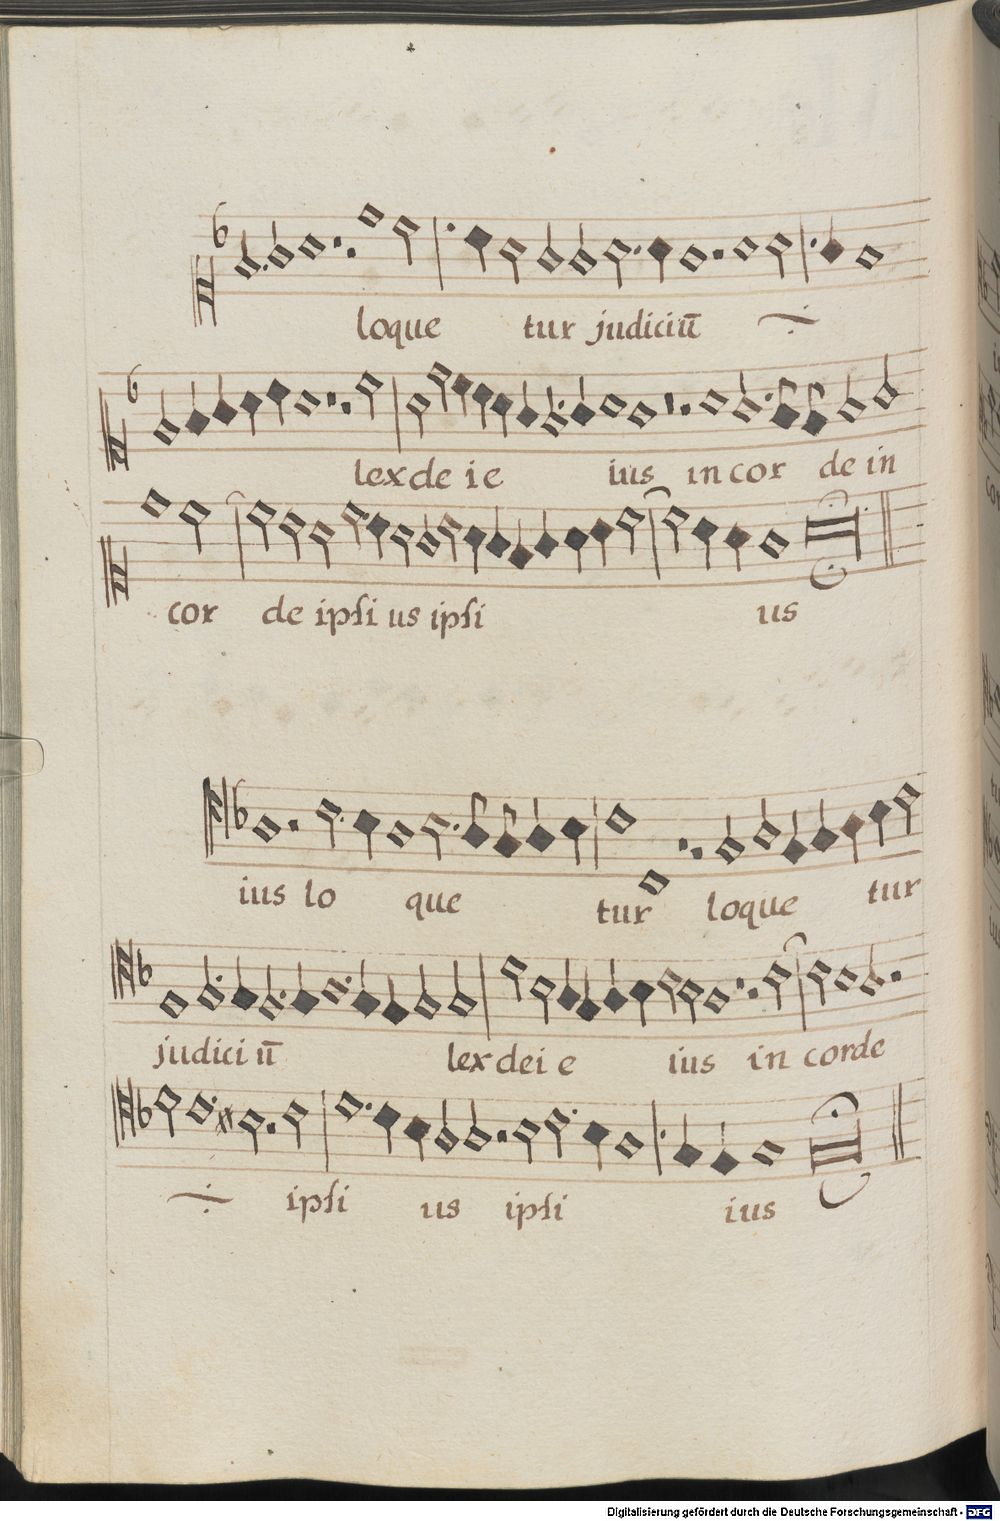 loque tur judiciū
lex de ie ius in cor de in
cor de ipſi us ipſi us
ius lo que tur loque tur
judici ū lex dei e ius in corde
ipſi us ipſi ius
Digitalisierung gefördert durch die Deutsche Forschungsgemeinschaft - DFG